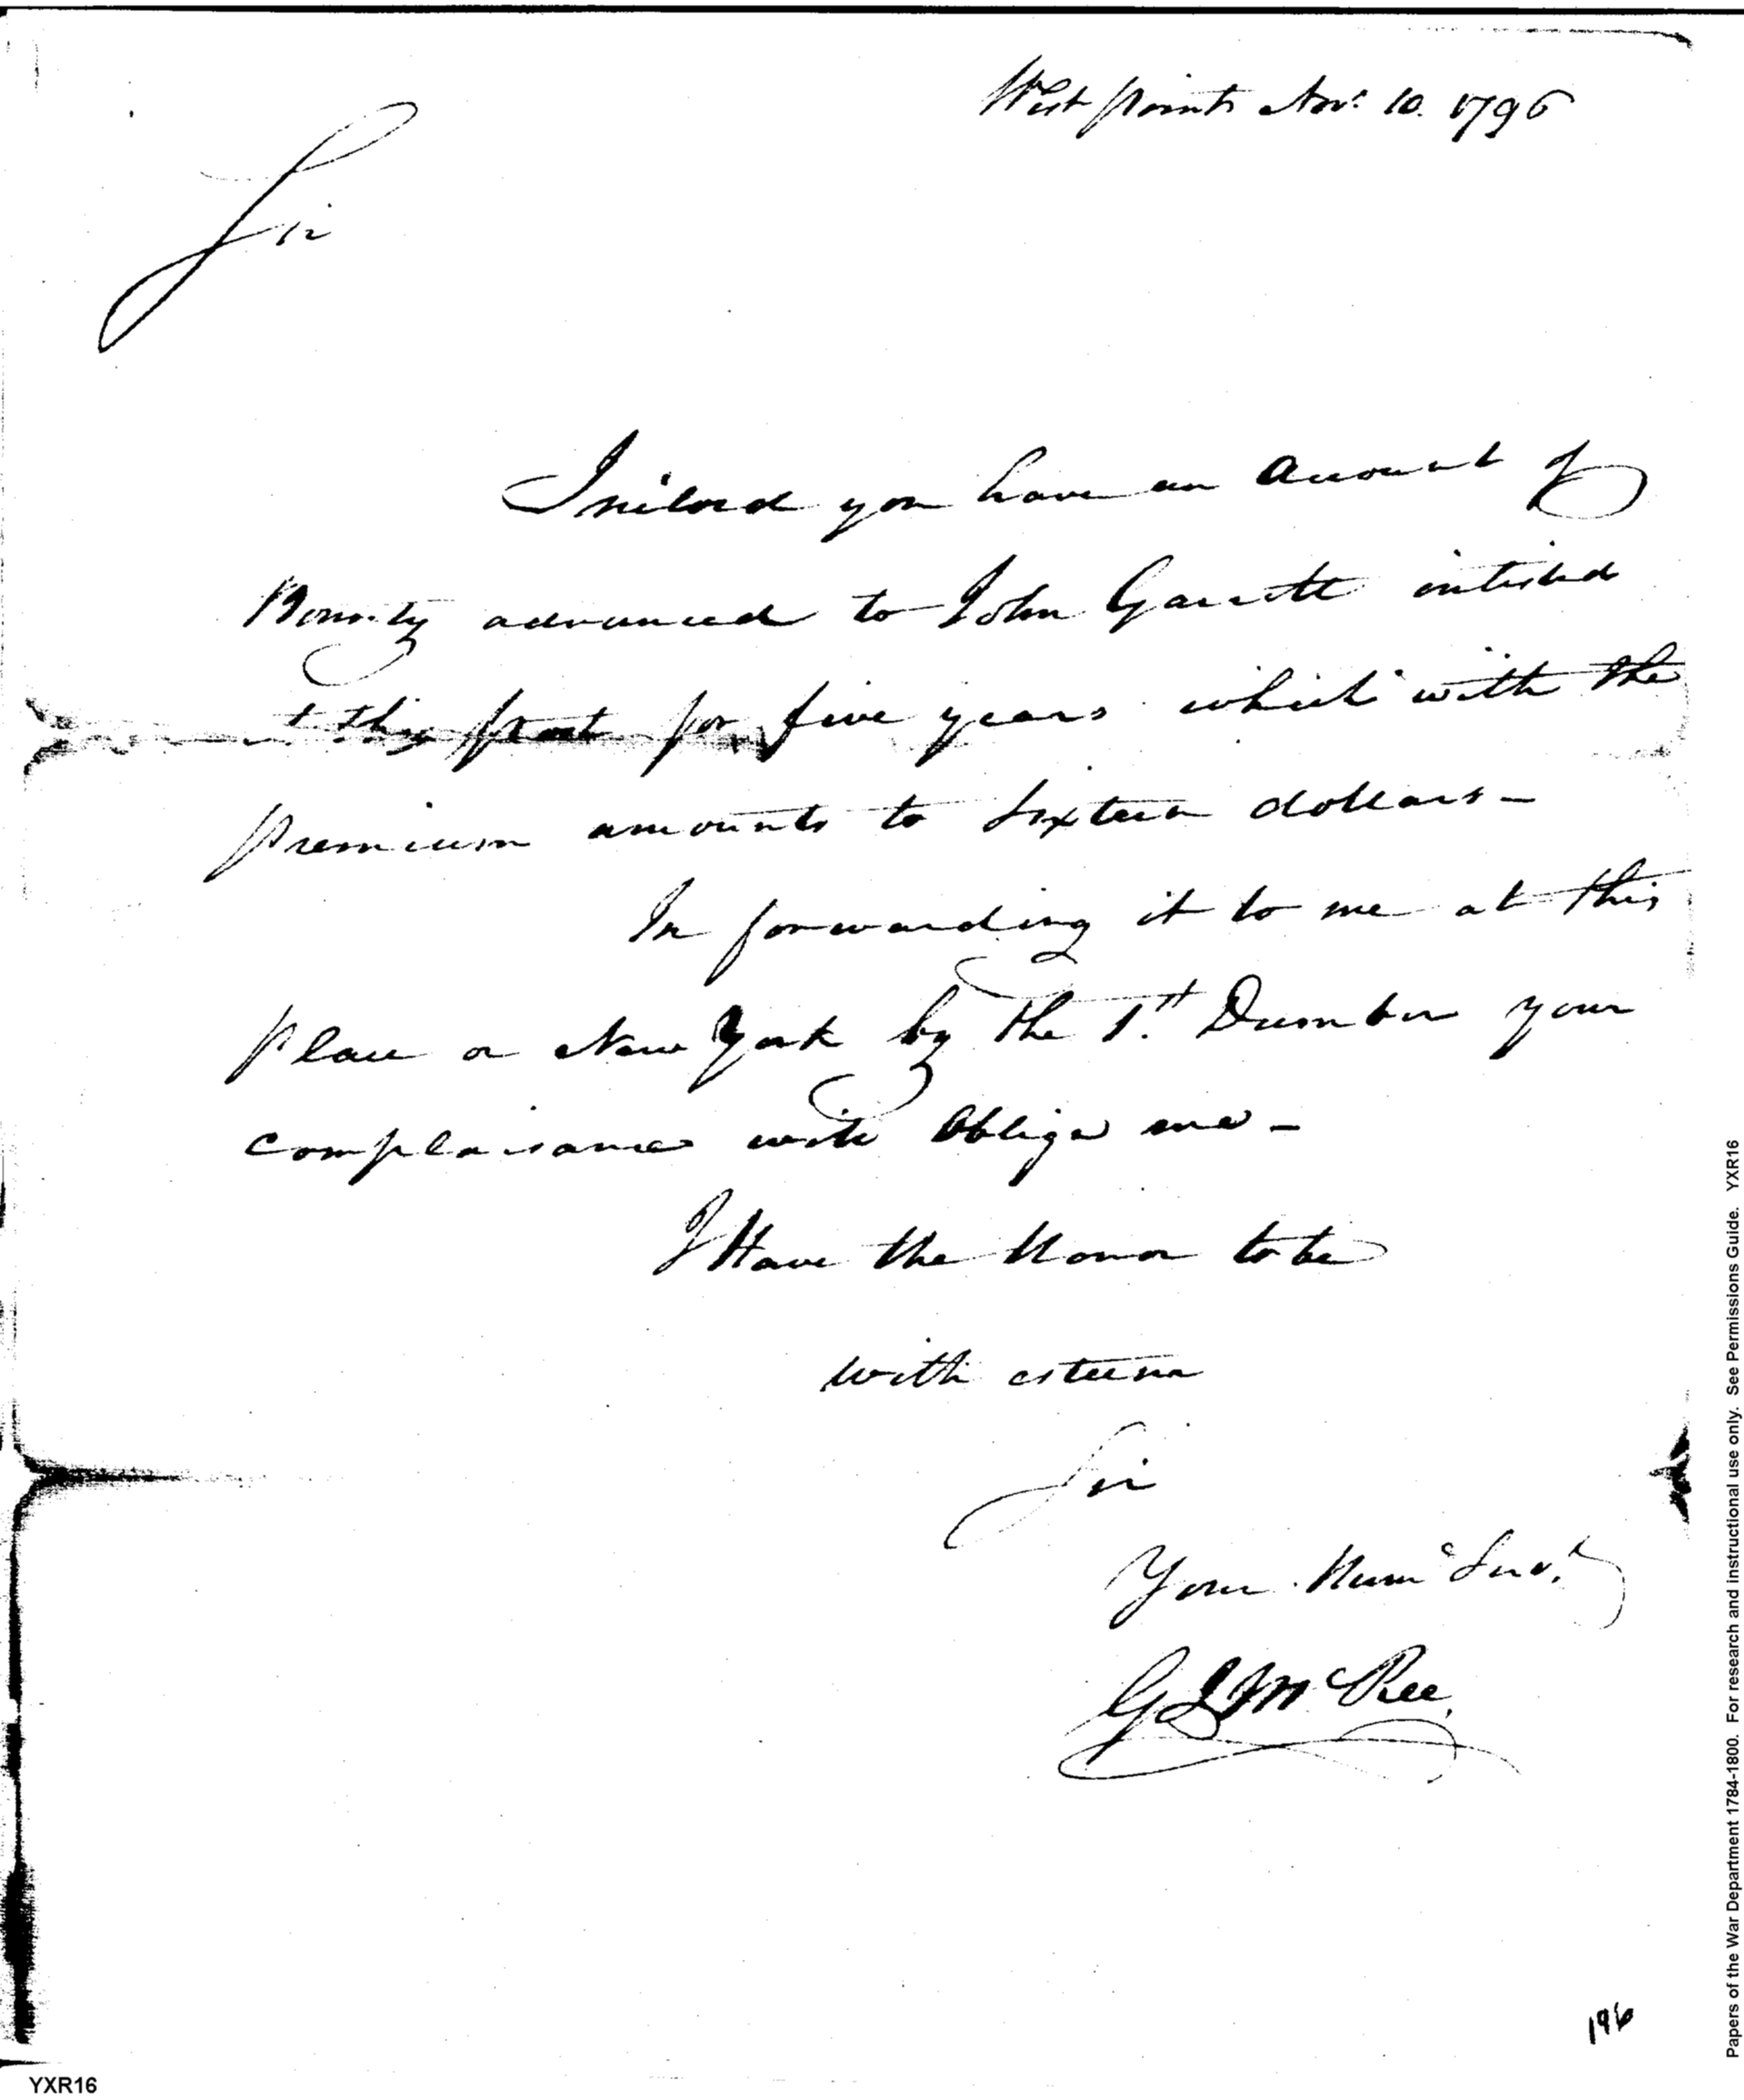 West point Novr 10. 1796
Sir
Inclosed you have an Account of
Bounty advanced to John Garrett intisted
t this post for five years which with the
premium amounts to Sixteen dollars-
In forwarding it to me at this
place or New York by the 1st December your
complaisance will Oblige me-
I Have the Honor to be
with esteem
Sir
Your Hume Servt
G L McRee.
196
YXR16
Papers of the War Department 1784-1800. For research and instructional use only. See Permissions Guide. YXR16